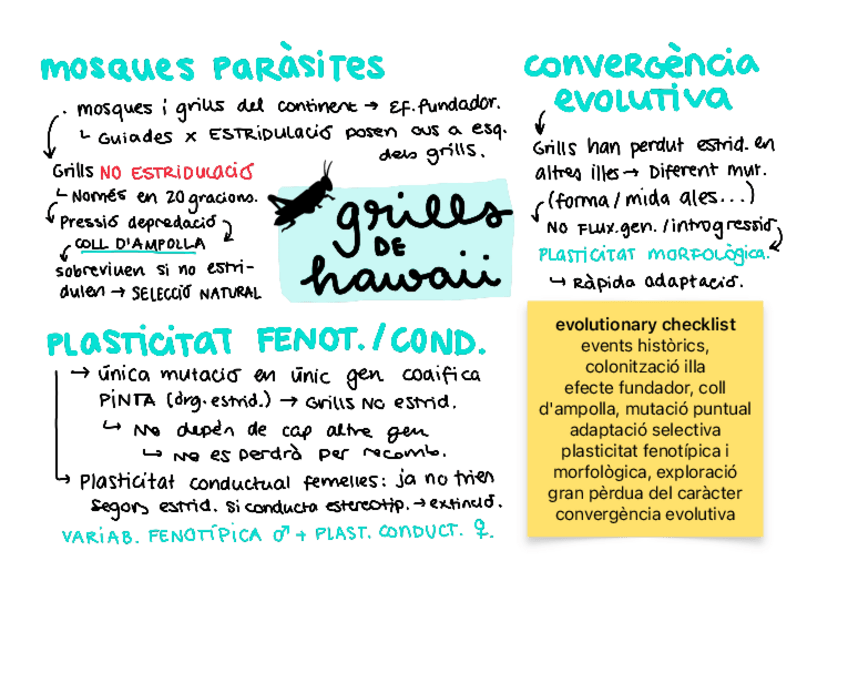 mosques paràsites
. mosques i grills del continent → Ef. fundador.
↳ Guiades x ESTRIDULACIÓ posen ous a esq.
dels grills.
Grills NO ESTRIDULACIÓ
↳ Només en 20 gracions.
Pressió depredació
COLL D'AMPOLLA
sobreviuen si no estri-
dulen → SELECCIÓ NATURAL
grills
DE
hawaii
convergència
evolutiva
Grills han perdut estrid. en
altres illes → Diferent mut.
(forma / mida ales...)
No FLUX.gen. / introgressió
PLASTICITAT MORFOLÒGICA.
↳ Ràpida adaptació.
PLASTICITAT FENOT. / COND.
→ única mutació en únic gen codifica
PINTA (òrg. estrid.) → Grills NO estrid.
↳ No depèn de cap altre gen
↳ No es perdrà per recomb.
↳ Plasticitat conductual femelles: ja no trien
segons estrid. Si conducta estereotip. → extinció.
VARIAB. FENOTÍPICA ♂ + PLAST. CONDUCT. ♀.
evolutionary checklist
events històrics,
colonització illa
efecte fundador, coll
d'ampolla, mutació puntual
adaptació selectiva
plasticitat fenotípica i
morfològica, exploració
gran pèrdua del caràcter
convergència evolutiva